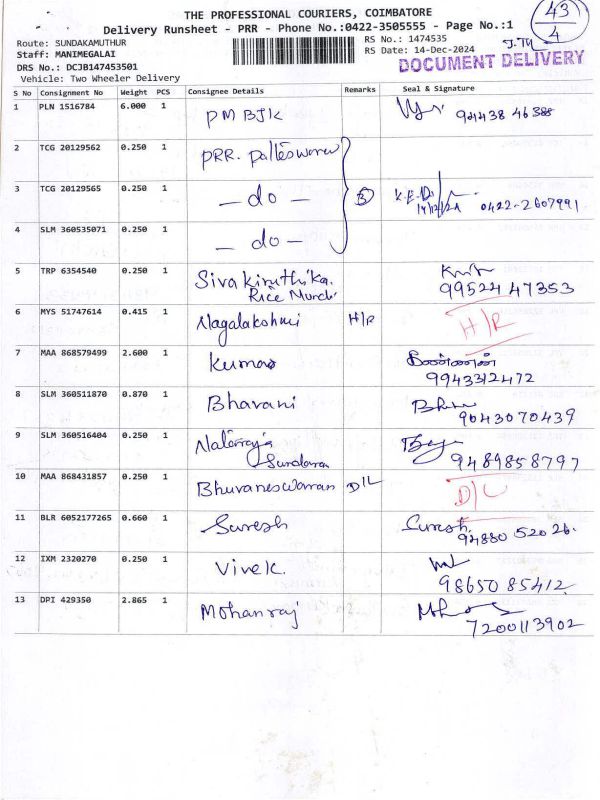 THE PROFESSIONAL COURIERS, COIMBATORE
Delivery Runsheet - PRR - Phone No.:0422-3505555 - Page No.:1
43
4
Route: SUNDAKAMUTHUR
Staff: MANIMEGALAI
DRS No.: DCJB147453501
Vehicle: Two Wheeler Delivery
RS No.: 1474535
RS Date: 14-Dec-2024
DOCUMENT DELIVERY
S No Consignment No Weight PCS Consignee Details Remarks Seal & Signature
1 PLN 1516784 6.000 1 PM BJK 94438 46388
2 TCG 20129562 0.250 1 PRR.
3 TCG 20129565 0.250 1 - do - 3 14/12/24 0422-2607991
4 SLM 360535071 0.250 1 - do -
5 TRP 6354540 0.250 1 Sivakiruthika. 99524 47353
Rice Mundi
6 MYS 51747614 0.415 1 Nagalakshmi H/R H/R
7 MAA 868579499 2.600 1 Kumar கண்ணன்
9943312472
8 SLM 360511870 0.870 1 Bhavani 9043070439
9 SLM 360516404 0.250 1 Nataraja 9489858797
Sundaram
10 MAA 868431857 0.250 1 Bhuvaneswaran D/L D/L
11 BLR 6052177265 0.660 1 Suresh Suresh.
94880 52026.
12 IXM 2320270 0.250 1 Vivek. 98650 85412
13 DPI 429350 2.865 1 Mohanraj 7200113902